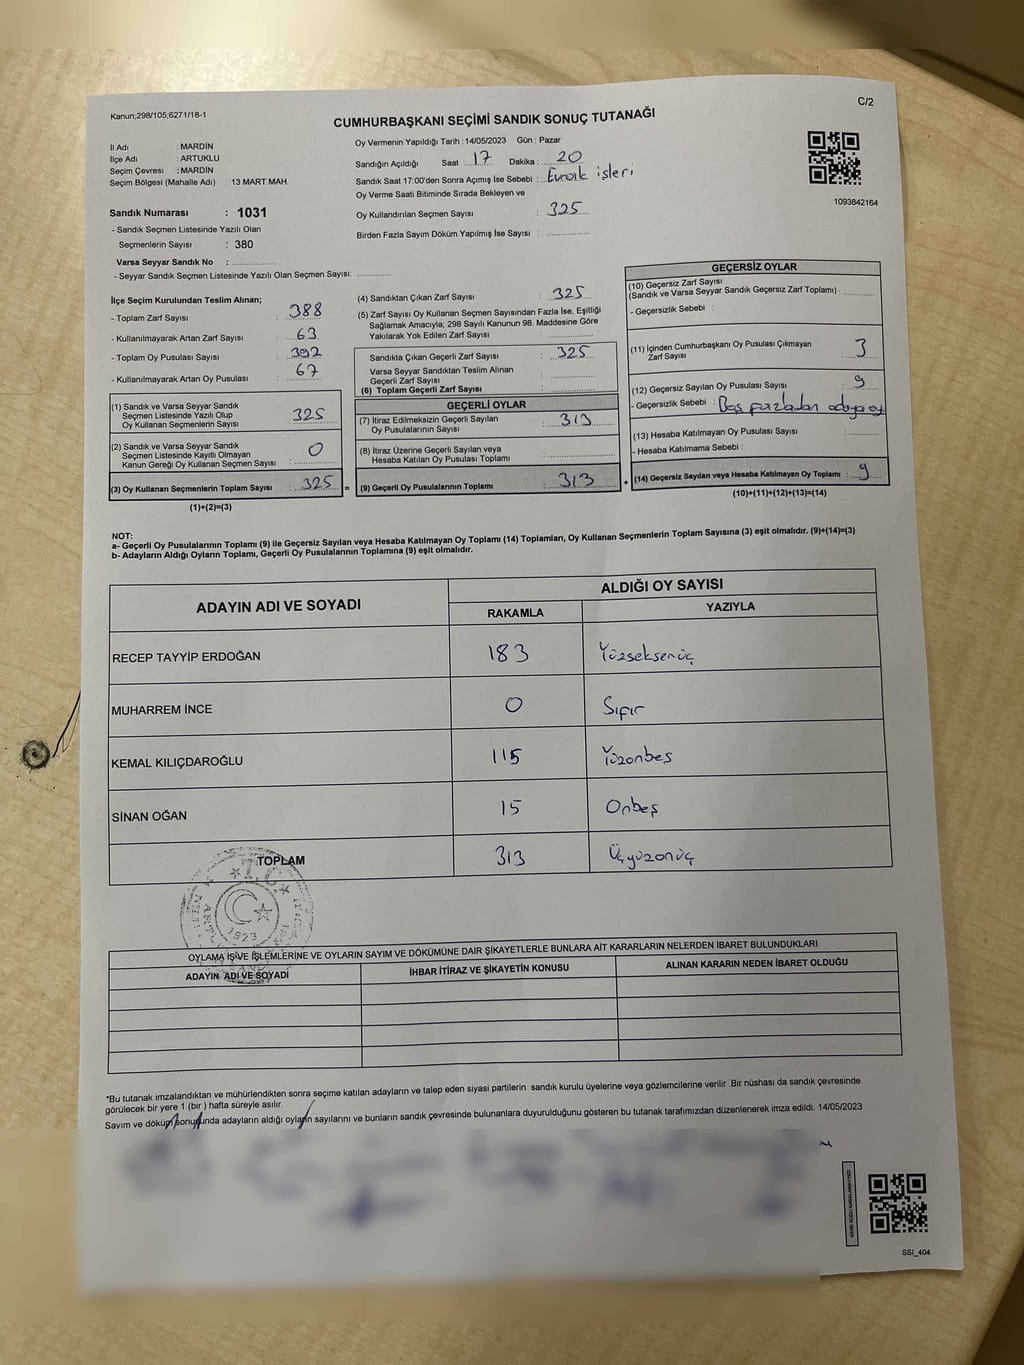 Kanun;298/105;6271/18-1
C/2
CUMHURBAŞKANI SEÇİMİ SANDIK SONUÇ TUTANAĞI
İl Adı : MARDİN
İlçe Adı : ARTUKLU
Seçim Çevresi : MARDİN
Seçim Bölgesi (Mahalle Adı) : 13 MART MAH.
Oy Vermenin Yapıldığı Tarih :14/05/2023 Gün : Pazar
Sandığın Açıldığı Saat : 17 Dakika : 20
Sandık Saat 17:00'den Sonra Açımış İse Sebebi : Evrak işleri
Oy Verme Saati Bitiminde Sırada Bekleyen ve
Oy Kullandırılan Seçmen Sayısı : 325
Birden Fazla Sayım Döküm Yapılmış İse Sayısı :
1093842164
Sandık Numarası : 1031
- Sandık Seçmen Listesinde Yazılı Olan
Seçmenlerin Sayısı : 380
Varsa Seyyar Sandık No :
- Seyyar Sandık Seçmen Listesinde Yazılı Olan Seçmen Sayısı:
İlçe Seçim Kurulundan Teslim Alınan;
- Toplam Zarf Sayısı : 388
- Kullanılmayarak Artan Zarf Sayısı : 63
- Toplam Oy Pusulası Sayısı : 392
- Kullanılmayarak Artan Oy Pusulası : 67
(1) Sandık ve Varsa Seyyar Sandık
Seçmen Listesinde Yazılı Olup
Oy Kullanan Seçmenlerin Sayısı : 325
(2) Sandık ve Varsa Seyyar Sandık
Seçmen Listesinde Kayıtlı Olmayan
Kanun Gereği Oy Kullanan Seçmen Sayısı : 0
(3) Oy Kullanan Seçmenlerin Toplam Sayısı : 325 =
(1)+(2)=(3)
(4) Sandıktan Çıkan Zarf Sayısı : 325
(5) Zarf Sayısı Oy Kullanan Seçmen Sayısından Fazla İse, Eşitliği
Sağlamak Amacıyla; 298 Sayılı Kanunun 98. Maddesine Göre
Yakılarak Yok Edilen Zarf Sayısı :
Sandıkta Çıkan Geçerli Zarf Sayısı : 325
Varsa Seyyar Sandıktan Teslim Alınan
Geçerli Zarf Sayısı :
(6) Toplam Geçerli Zarf Sayısı :
GEÇERLİ OYLAR
(7) İtiraz Edilmeksizin Geçerli Sayılan
Oy Pusulalarının Sayısı : 313
(8) İtiraz Üzerine Geçerli Sayılan veya
Hesaba Katılan Oy Pusulası Toplamı :
(9) Geçerli Oy Pusulalarının Toplamı : 313 +
GEÇERSİZ OYLAR
(10) Geçersiz Zarf Sayısı
(Sandık ve Varsa Seyyar Sandık Geçersiz Zarf Toplamı) :
- Geçersizlik Sebebi :
(11) İçinden Cumhurbaşkanı Oy Pusulası Çıkmayan
Zarf Sayısı : 3
(12) Geçersiz Sayılan Oy Pusulası Sayısı : 9
- Geçersizlik Sebebi : oy
(13) Hesaba Katılmayan Oy Pusulası Sayısı :
- Hesaba Katılmama Sebebi :
(14) Geçersiz Sayılan veya Hesaba Katılmayan Oy Toplamı : 9
(10)+(11)+(12)+(13)=(14)
NOT:
a- Geçerli Oy Pusulalarının Toplamı (9) ile Geçersiz Sayılan veya Hesaba Katılmayan Oy Toplamı (14) Toplamları, Oy Kullanan Seçmenlerin Toplam Sayısına (3) eşit olmalıdır. (9)+(14)=(3)
b- Adayların Aldığı Oyların Toplamı, Geçerli Oy Pusulalarının Toplamına (9) eşit olmalıdır.
ADAYIN ADI VE SOYADI
ALDIĞI OY SAYISI
RAKAMLA YAZIYLA
RECEP TAYYİP ERDOĞAN 183 Yüzseksenüç
MUHARREM İNCE 0 Sıfır
KEMAL KILIÇDAROĞLU 115 Yüzonbeş
SİNAN OĞAN 15 Onbeş
TOPLAM 313 Üçyüzonüç
T.C.
1923
OYLAMA İŞ VE İŞLEMLERİNE VE OYLARIN SAYIM VE DÖKÜMÜNE DAİR ŞİKAYETLERLE BUNLARA AİT KARARLARIN NELERDEN İBARET BULUNDUKLARI
ADAYIN ADI VE SOYADI İHBAR İTİRAZ VE ŞİKAYETİN KONUSU ALINAN KARARIN NEDEN İBARET OLDUĞU
*Bu tutanak imzalandıktan ve mühürlendikten sonra seçime katılan adayların ve talep eden siyasi partilerin sandık kurulu üyelerine veya gözlemcilerine verilir .Bir nüshası da sandık çevresinde
görülecek bir yere 1 (bir ) hafta süreyle asılır.
Sayım ve döküm sonucunda adayların aldığı oyların sayılarını ve bunların sandık çevresinde bulunanlara duyurulduğunu gösteren bu tutanak tarafımızdan düzenlenerek imza edildi. 14/05/2023
SSI_404